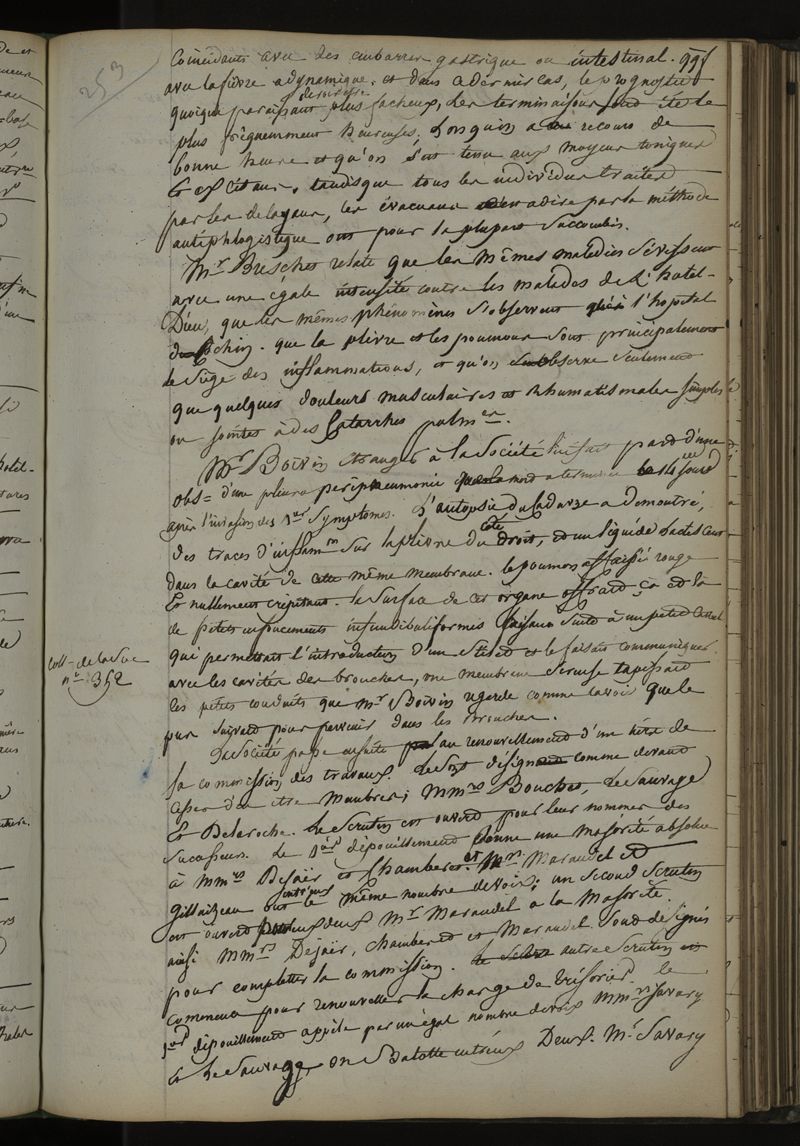 253
Coincidents avec des embarras gastrique ou intestinal.
avec la fièvre adynamique. et dans ce dernier cas, le prognostic
quoique paraissant devoir être plus facheux, les terminaisons ont été le
plus fréquemment heureuses, Lorsqu'on a eu recours de
bonne heure et qu'on s'est tenu aux moyens toniques
Et excitans, tandisque tous les individus traités
par les delayans, les évacuans c'est a dire par la méthode
antiphlogistique ont pour la plupart succombés.
Mr Breschet relate que les mêmes maladies sévissent
avec une égale intensité contre les malades de L'hotel-
Dieu, que les mêmes phénomènes s'observent à l'hopital
Cochin. que la plèvre et les poumons sont principalement
le siège des inflammations, et qu'on observe seulement
que quelques douleurs musculaires et Rhumatismales simples
ou jointes à des Catarrhes pulm.res
Mr Boivin étranger à la Société lui fait part d'une
obs= d'une pleuro peripneumonie que la mort a terminée le 14 jour
après l'invasion des 1ers symptomes. L'autopsie du Cadavre a demontré,
des traces d'inflamm.on sur la plèvre du coté droit, et un liquide lactescent
dans la cavité de cette même membrane. le poumon affaissé rouge
Et nullement crépitant. la surface de cet organe offrait ça et là
de petits enfoncements infundibuliformes faisant suite à un petit canal
qui permettait l'introduction d'un stilet et le faisait communiquer
avec les cavités des bronches, une membrane séreuse tapissait
les petits conduits que Mr Boivin regarde comme la voie que le
pus suivait pour parvenir dans les bronches.
Coll- de la Soc
n° 352
La Société passe ensuite au renouvellement d'un tiers de
la commission des travaux. Le sort désigne comme devant
cesser d'en etre Membres; MMrs Bouchet, de Sauvage
Et Delaroche. Le scrutin est ouvert pour leur nommer des
successeurs. Le 1er dépouillement donne une majorité absolue
à MMrs Dejaër et Chamberet. et Mrs Marandel et
Gillaizeau ont le même nombre de voix; un second scrutin
est ouvert entre eux deux Mr Marandel a la Majorité.
ainsi MMrs Dejaër, Chamberet et Marandel sont designés
pour completter la commission. autre scrutin
commence pour renouveller la charge de Trésorier. le
1er dépouillement appèle par un égal nombre de voix MMrs Savary
Et de Sauvage on Balotte entr'eux Deux. Mr Savary